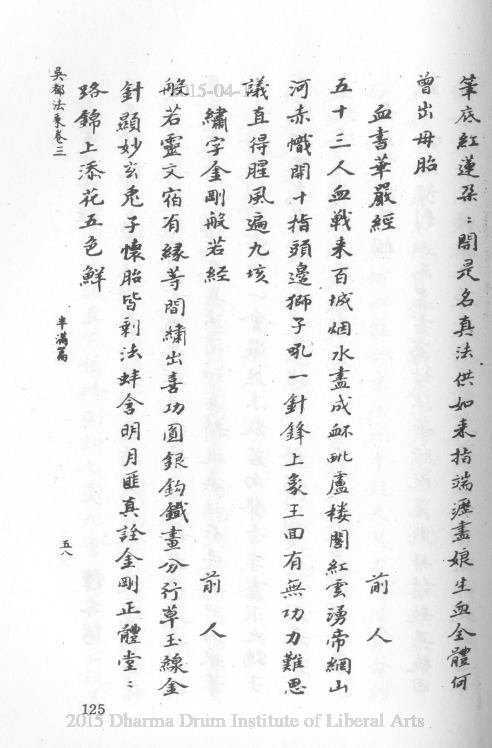 筆底紅蓮朶〻開是名真法供如来指端瀝盡娘生血全體何
曾出母胎
血書華嚴經
前人
五十三人血戰来百城烟水盡成衃毗盧楼閣紅雲湧帝網山
河赤幟開十指頭邊獅子吼一針鋒上象王回有無功力難思
議直得腥風遍九垓
繡字金剛般若経
前人
般若靈文宿有縁等間繡出善功圆銀鈎鐡畫分行草玉線金
針顯妙玄兎子懐胎皆剩法蚌含明月匪真詮金剛正體堂〻
路錦上添花五色鮮
吳都法乗巻三
半滿篇
五八
125
2015-04-1
2015 Dharma Drum Institute of Liberal Arts